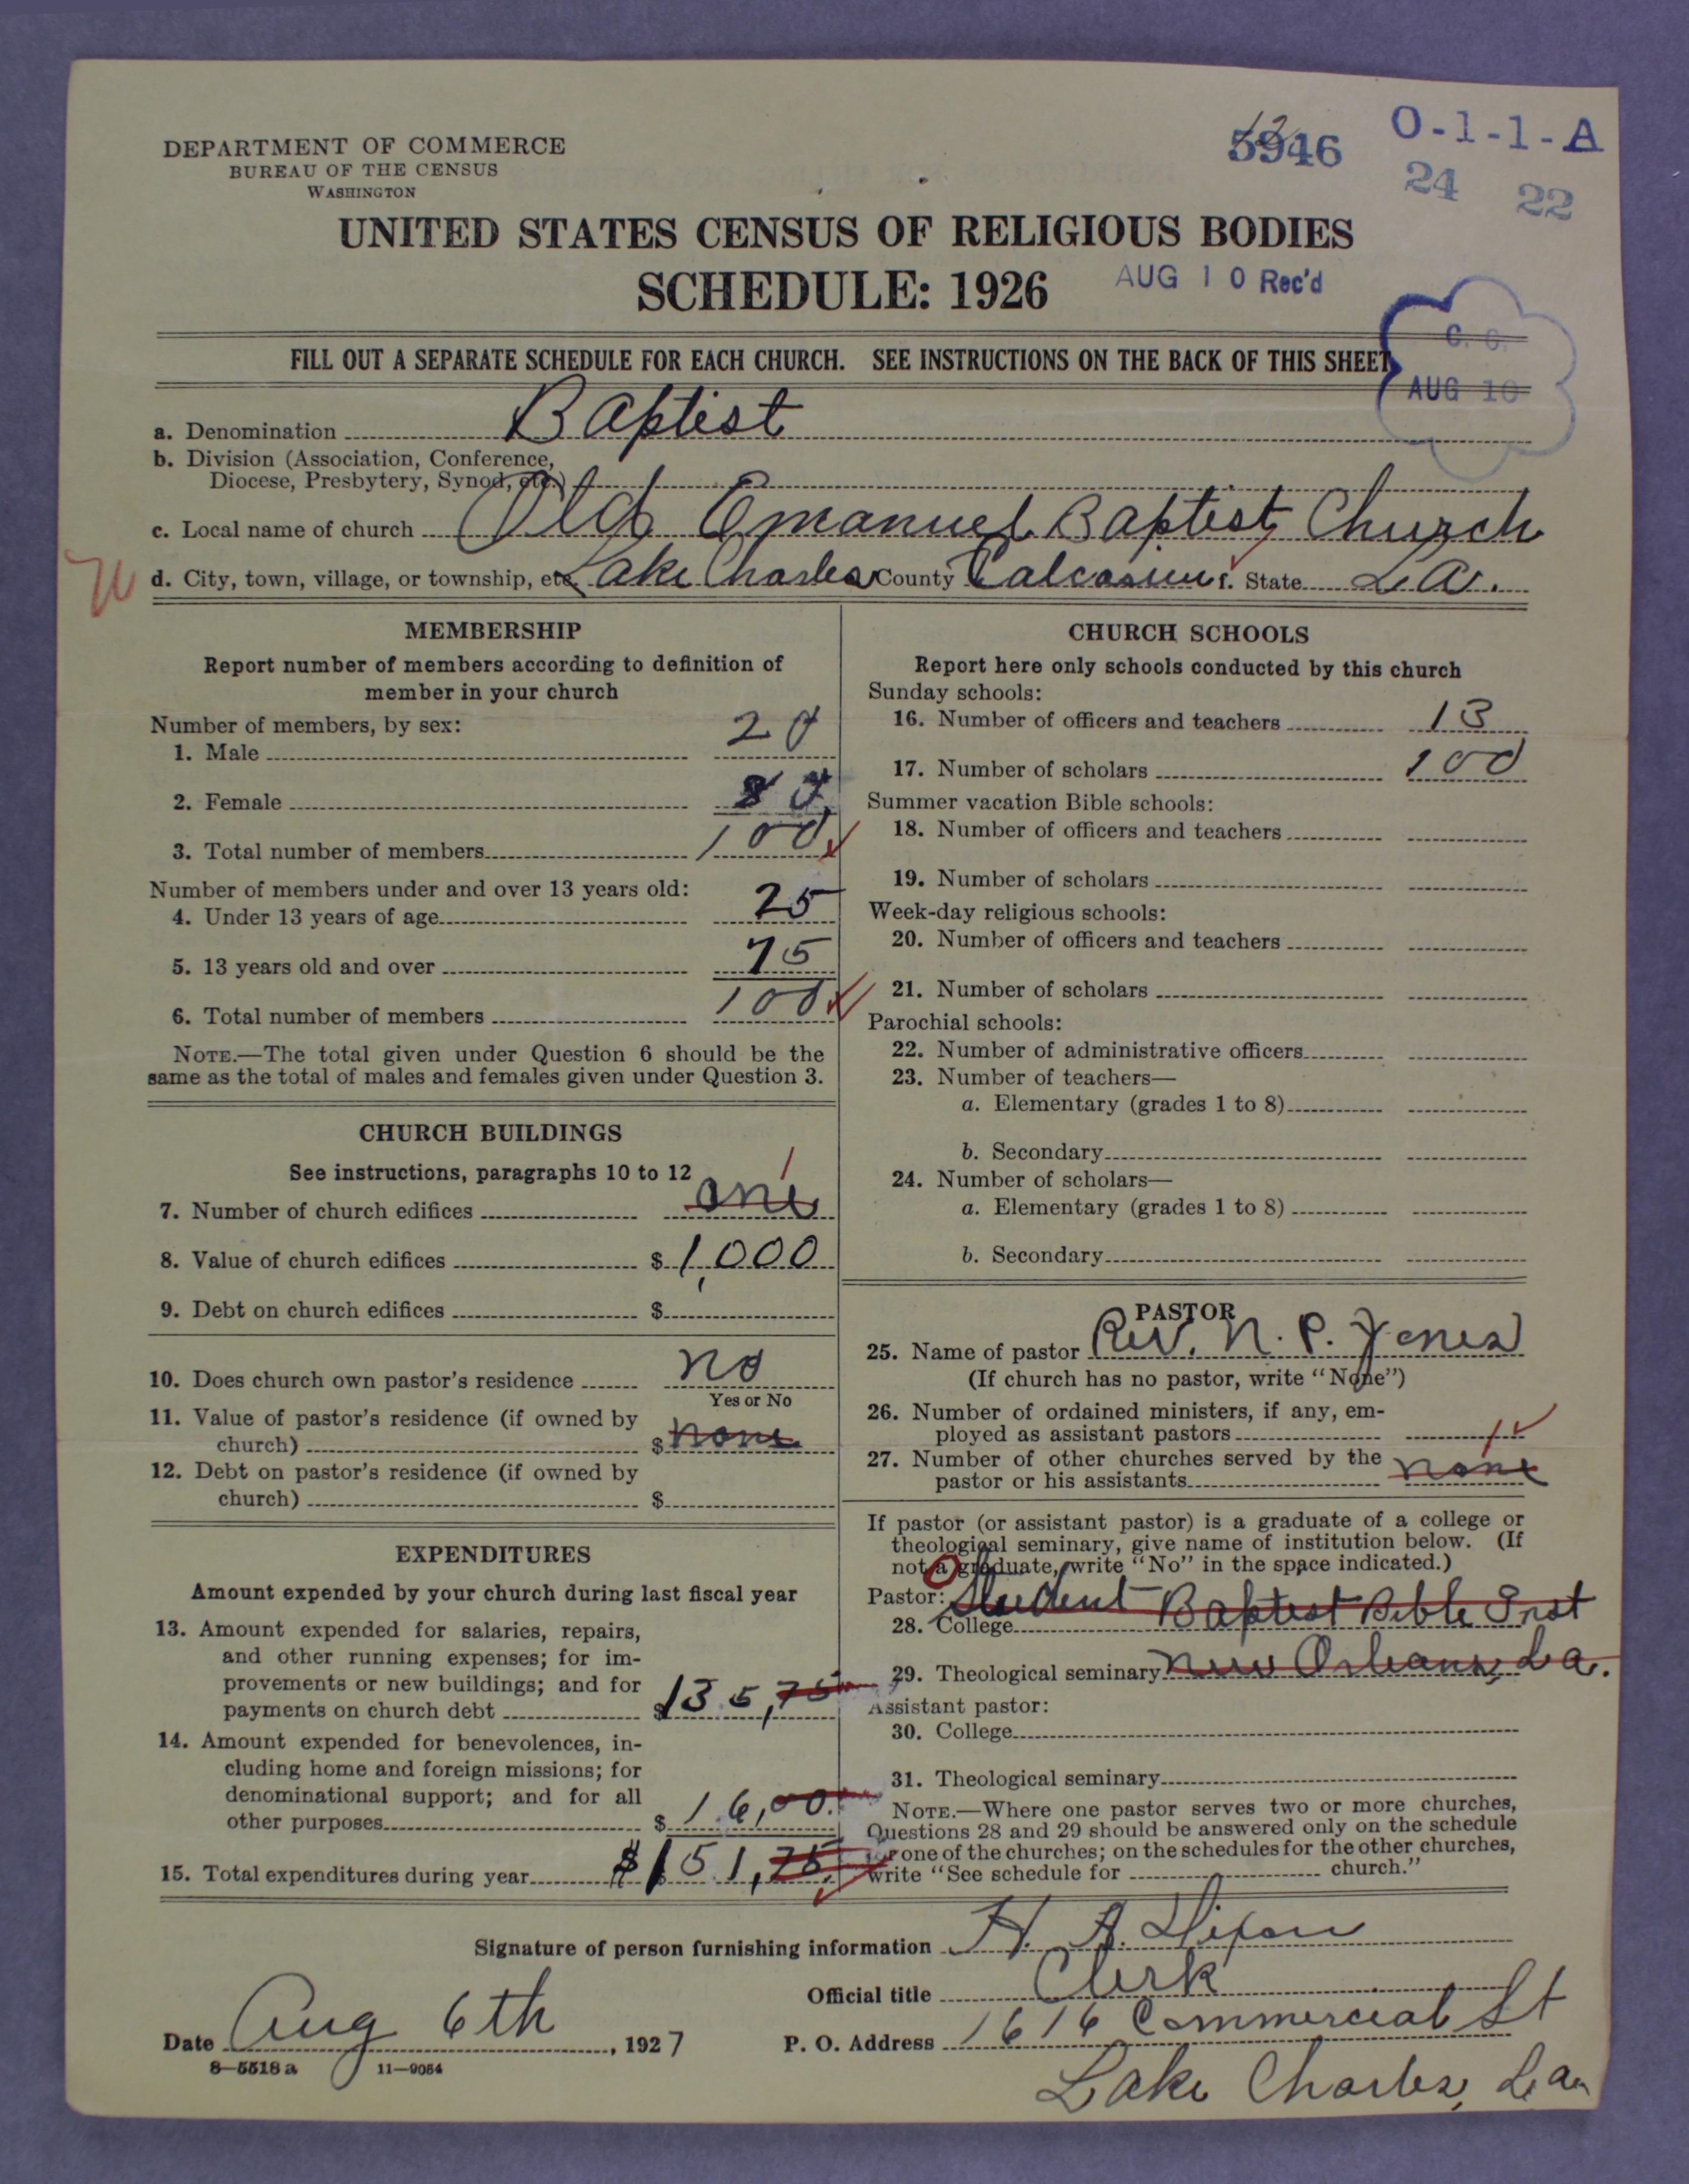 DEPARTMENT OF COMMERCE
BUREAU OF THE CENSUS
WASHINGTON
5946
O-1-1-A
24 22
UNITED STATES CENSUS OF RELIGIOUS BODIES
SCHEDULE: 1926
AUG 10 Rec'd
C. C.
AUG 10
FILL OUT A SEPARATE SCHEDULE FOR EACH CHURCH. SEE INSTRUCTIONS ON THE BACK OF THIS SHEET
a. Denomination Baptist
b. Division (Association, Conference,
Diocese, Presbytery, Synod, etc.)
c. Local name of church Old Emanuel Baptist Church
d. City, town, village, or township, etc. Lake Charles County Calcasieu f. State La.
MEMBERSHIP
Report number of members according to definition of
member in your church
Number of members, by sex:
1. Male 20
2. Female 80
3. Total number of members 100
Number of members under and over 13 years old:
4. Under 13 years of age 25
5. 13 years old and over 75
6. Total number of members 100
NOTE.—The total given under Question 6 should be the
same as the total of males and females given under Question 3.
CHURCH BUILDINGS
See instructions, paragraphs 10 to 12
1
7. Number of church edifices one
8. Value of church edifices $ 1,000
9. Debt on church edifices $
10. Does church own pastor's residence no
Yes or No
11. Value of pastor's residence (if owned by
church) $ none
12. Debt on pastor's residence (if owned by
church) $
EXPENDITURES
Amount expended by your church during last fiscal year
13. Amount expended for salaries, repairs,
and other running expenses; for im-
provements or new buildings; and for
payments on church debt $ 135,75
14. Amount expended for benevolences, in-
cluding home and foreign missions; for
denominational support; and for all
other purposes $ 16,00.
15. Total expenditures during year $ 151,75
CHURCH SCHOOLS
Report here only schools conducted by this church
Sunday schools:
16. Number of officers and teachers 13
17. Number of scholars 100
Summer vacation Bible schools:
18. Number of officers and teachers
19. Number of scholars
Week-day religious schools:
20. Number of officers and teachers
21. Number of scholars
Parochial schools:
22. Number of administrative officers
23. Number of teachers—
a. Elementary (grades 1 to 8)
b. Secondary
24. Number of scholars—
a. Elementary (grades 1 to 8)
b. Secondary
PASTOR
25. Name of pastor Rev. N. P. Jones
(If church has no pastor, write "None")
26. Number of ordained ministers, if any, em-
ployed as assistant pastors
27. Number of other churches served by the
pastor or his assistants none
If pastor (or assistant pastor) is a graduate of a college or
theological seminary, give name of institution below. (If
not a graduate, write "No" in the space indicated.)
Pastor: Student Baptist Bible Inst
28. College
29. Theological seminary New Orleans, La.
Assistant pastor:
30. College
31. Theological seminary
NOTE.—Where one pastor serves two or more churches,
Questions 28 and 29 should be answered only on the schedule
for one of the churches; on the schedules for the other churches,
write "See schedule for church."
Signature of person furnishing information H. A. Dixon
Official title Clerk
Date Aug 6th, 1927
P. O. Address 1616 Commercial St
Lake Charles, La
8—5518 a 11—9054